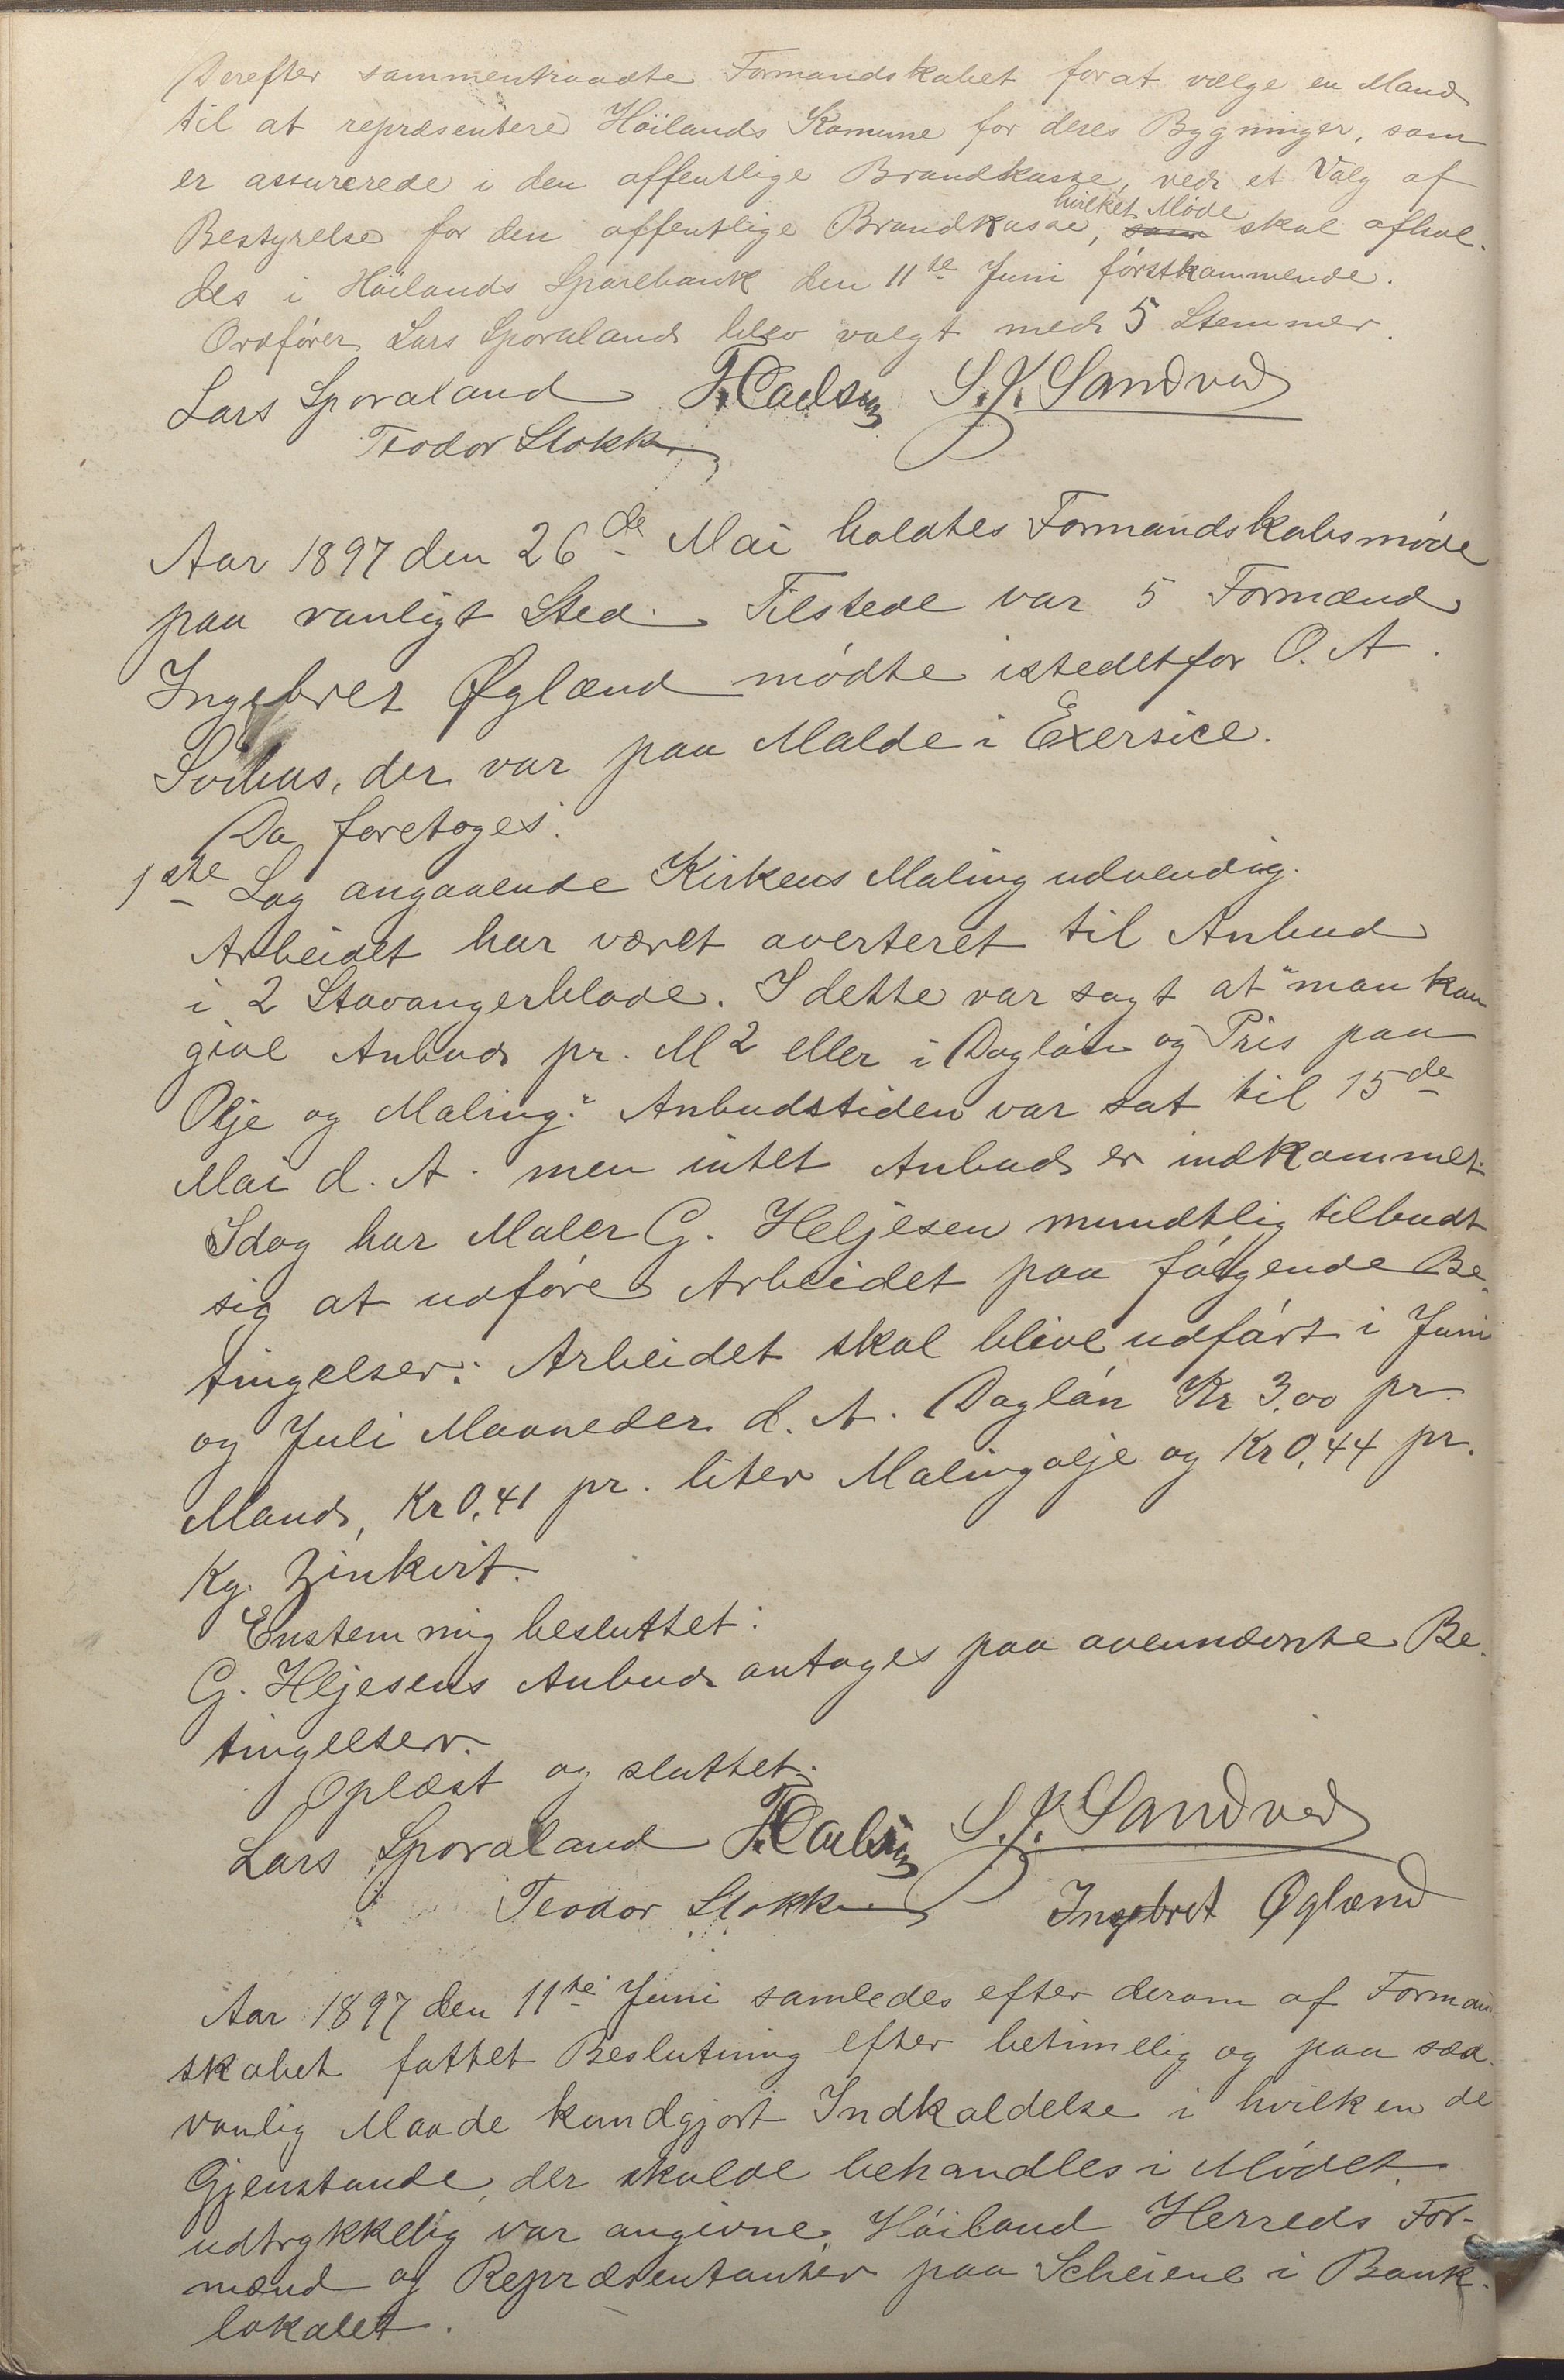 Derefter sammentraadte Formandskabet forat vælge en Mand
til at repræsentere Høilands Komune for deres Bygninger, som
er assurerede i den offentlige Brandkasse, ved et Valg af
Bestyrelse for den offentlige Brandkasse, hvilket Møde skal afhol-
des i Høilands Sparebank den 11te Juni førstkommende.
Ordfører Lars Sporaland blev valgt med 5 Stemmer.
Lars Sporaland T. Carlsen S. K. Sandved
Teodor Stokke
Aar 1897 den 26de Mai holdtes Formandskabsmøde
paa vanligt Sted. Tilstede var 5 Formænd
Ingebret Øglænd mødte istedetfor O. A.
Svihus, der var paa Malde i Exersice.
Da foretoges:
1ste Sag angaaende Kirkens Maling udvendig.
Arbeidet har været averteret til Anbud
i 2 Stavangerblade. I dette var sagt at "man kan
give Anbud pr. M2 eller i Dagløn og Pris paa
Olje og Maling." Anbudstiden var sat til 15de
Mai d. A. men intet Anbud er indkommet.
Idag har Maler G. Heljesen mundtlig tilbudt
sig at udføre Arbeidet paa følgende Be-
tingelser: Arbeidet skal blive udført i Juni
og Juli Maaneder d. A. Dagløn Kr 3,00 pr.
Mand, Kr 0,41 pr. liter Malingolje og Kr 0,44 pr.
Kg. Zinkvit.
Enstemmig besluttet:
G. Hljesens Anbud antages paa ovennævnte Be-
tingelser.
Oplæst og sluttet.
Lars Sporaland T. Carlsen S. K. Sandved
Teodor Stokke Ingebret Øglænd
Aar 1897 den 11te Juni samledes efter derom af Forman
skabet fattet Beslutning efter betimelig og paa sæd-
vanlig Maade kundgjort Indkaldelse i hvilken de
Gjenstande, der skulde behandles i Mødet
udtrykkelig var angivne, Høiland Herreds For-
mænd og Repræsentanter paa Scheiene i Bank-
lokalet.